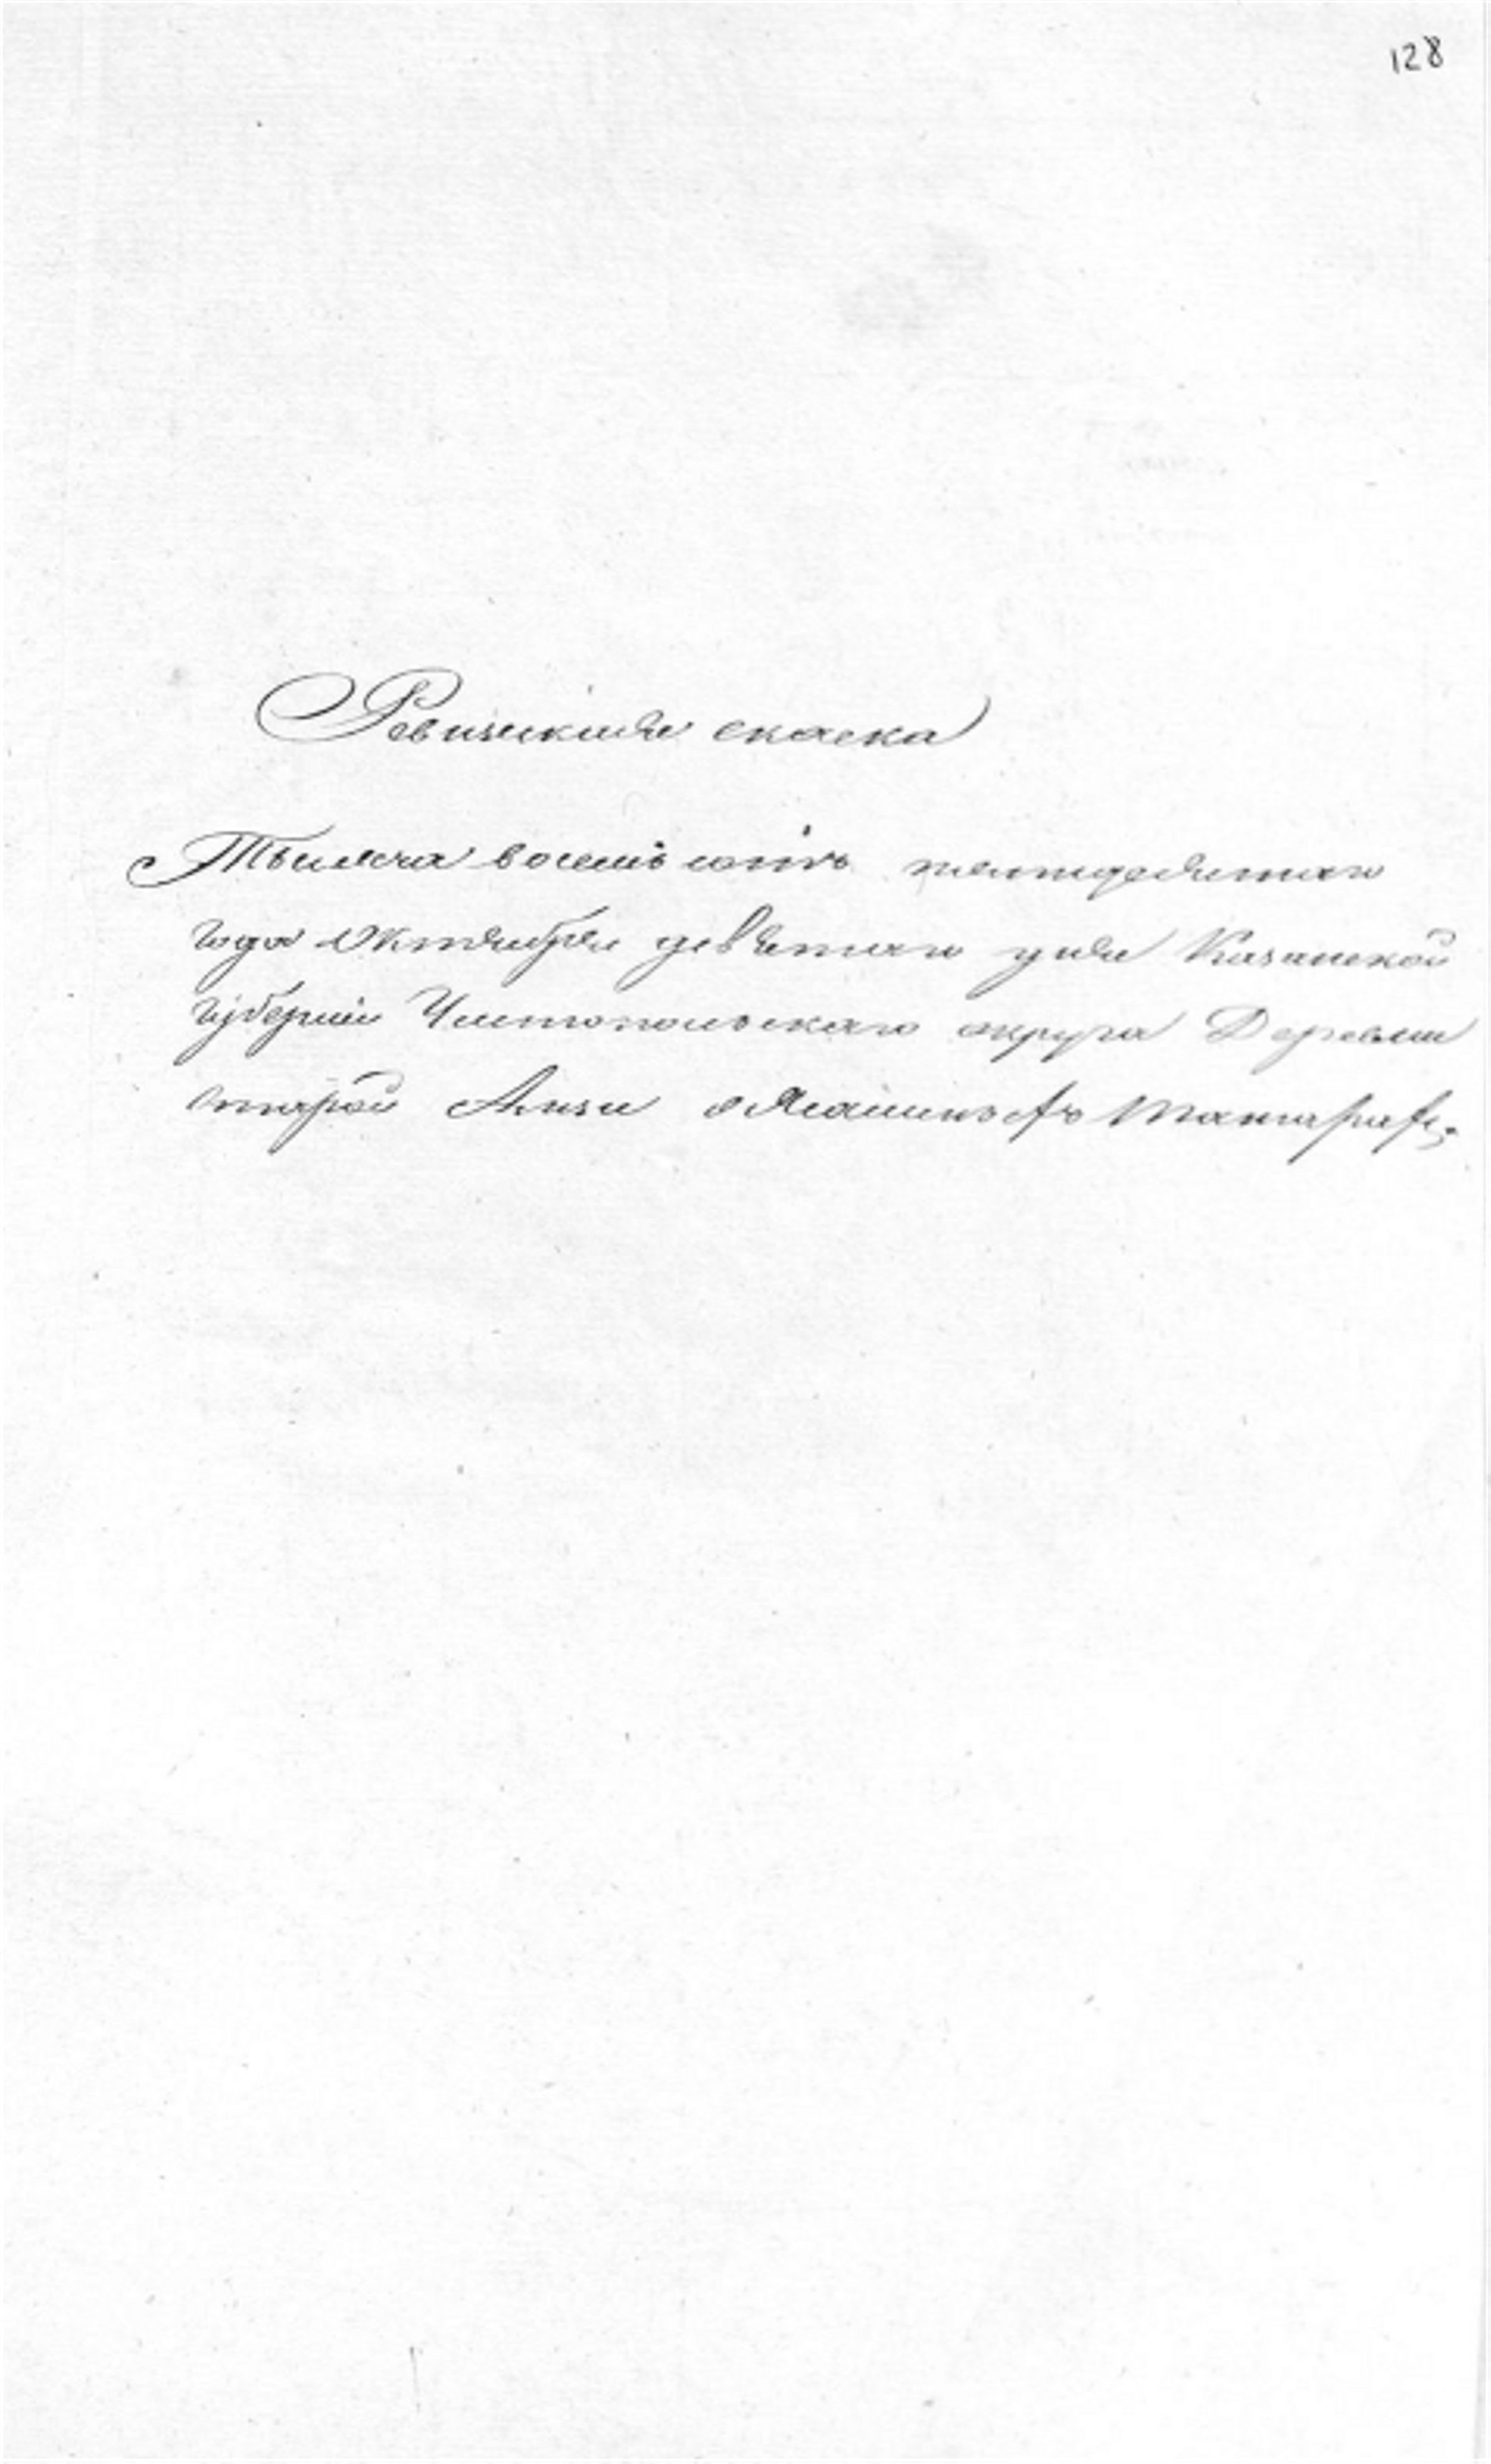 128
Ревизская скаска
Тысяча восемь сотъ пятидесятаго
года Октября девятаго дня Казанской
губерніи Чистопольскаго округа Деревни
Старой Амзи о Ясашныхъ Татарахъ.